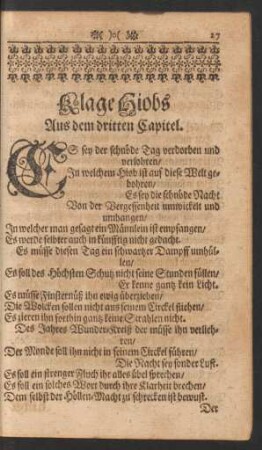 27
Klage Hiobs
Aus dem dritten Capitel.
ES sey der schnöde Tag verdorben und
verlohren/
In welchem Hiob ist auf diese Welt ge-
bohren/
Es sey die schnöde Nacht
Von der Vergessenheit umwickelt und
umhangen/
In welcher man gesagt ein Männlein ist empfangen/
Es werde selbter auch in künfftig nicht gedacht.
Es müsse diesen Tag ein schwartzer Dampff umhül-
len/
Es soll des Höchsten Schutz nicht seine Stunden füllen/
Er kenne gantz kein Licht.
Es müsse Finsternüß ihn ewig überziehen/
Die Wolcken sollen nicht aus seinem Circkel fliehen/
Es zieren ihn forthin gantz keine Strahlen nicht.
Des Jahres Wunder-Kreiß der müsse ihn verlieh-
ren/
Der Monde soll ihn nicht in seinem Circkel führen/
Die Nacht sey sonder Lust.
Es soll ein strenger Fluch ihr alles übel sprechen/
Es soll ein solches Wort durch ihre Klarheit brechen/
Dem selbst der Höllen-Macht zu schrecken ist bewust.
Der